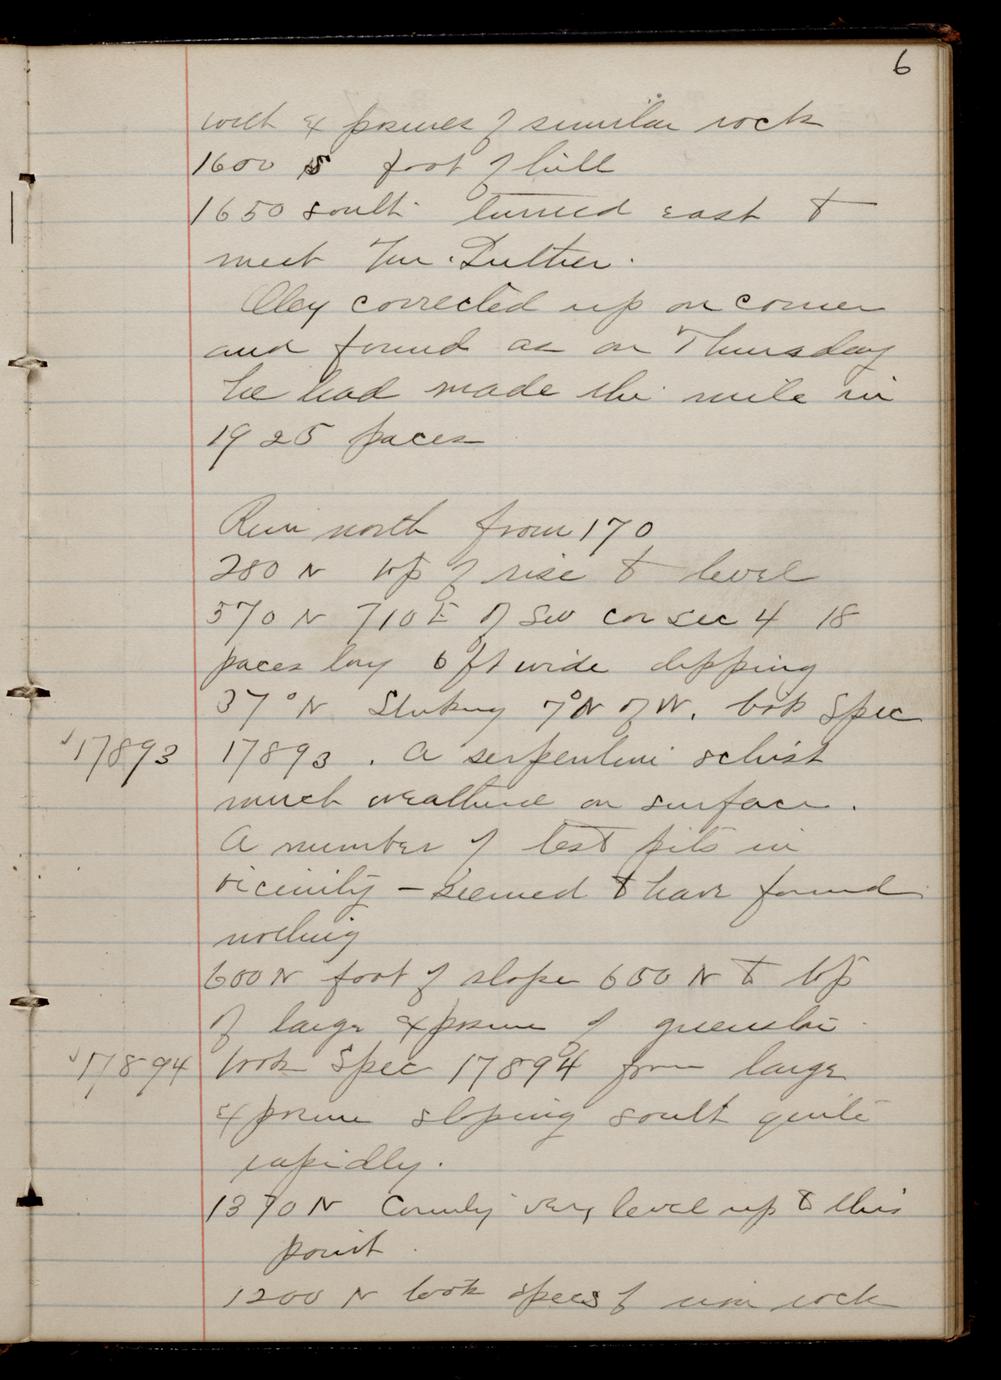 6
with exposures of similar rock
1600 S foot of hill
1650 south turned east to
meet Mr.
Oley corrected up on corner
and found as on Thursday
he had made the mile in
1925 paces
Run north from 170
280 N top of rise to level
570 N 710 E of SW cor sec 4 18
paces long 6 ft wide dipping
37° N Striking 7° N of W. took Spec
17893 17893. A serpentine schist
much weathered on surface.
A number of test pits in
vicinity – seemed to have found
nothing
600 N foot of slope 650 N to top
of large exposure of greenstone
17894 took Spec 17894 from large
exposure sloping south quite
rapidly.
1370 N Country very level up to this
point.
1200 N took specs of rock